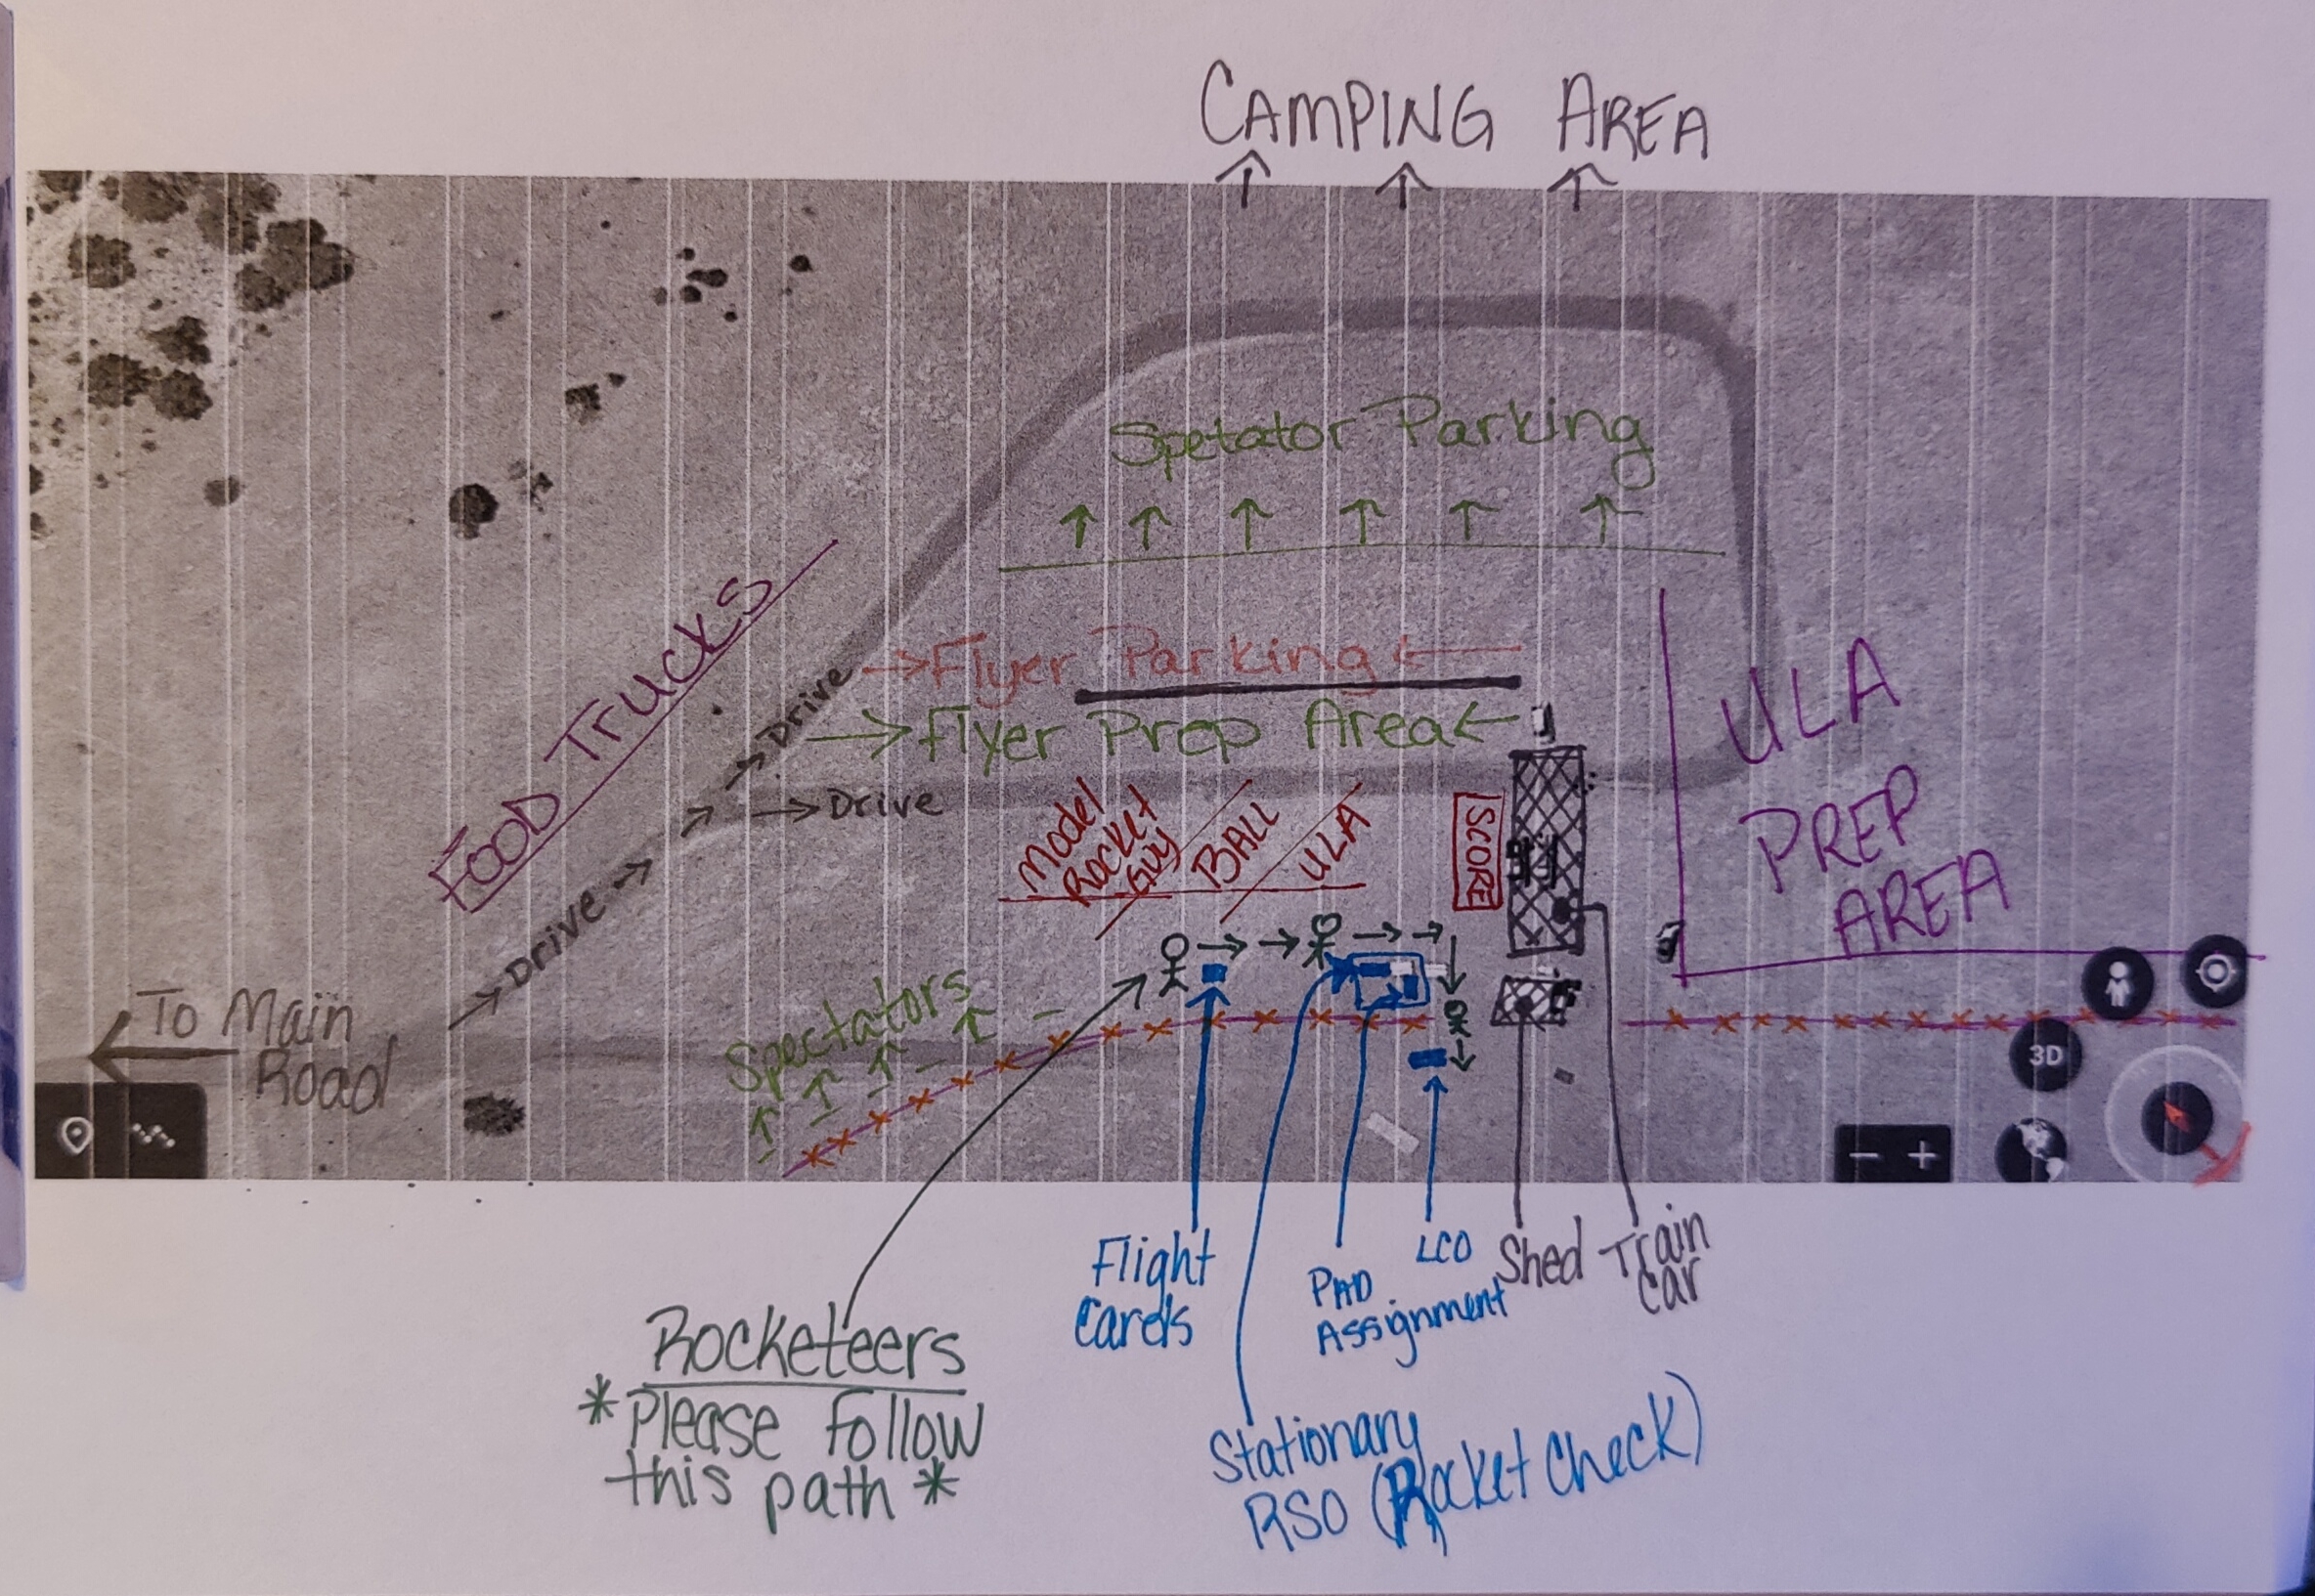 CAMPING AREA
Spetator Parking
Flyer Parking
Flyer Prep Area
FOOD TRUCKS
Drive
Drive
Drive
Model
Rocket
Guy
BALL
ULA
SCORE
ULA
PREP
AREA
To Main
Road
Spectators
3D
Rocketeers
*Please follow
this path *
Flight
Cards
PAD
Assignment
LCO
Shed
Train
Car
Stationary
RSO (Rocket Check)